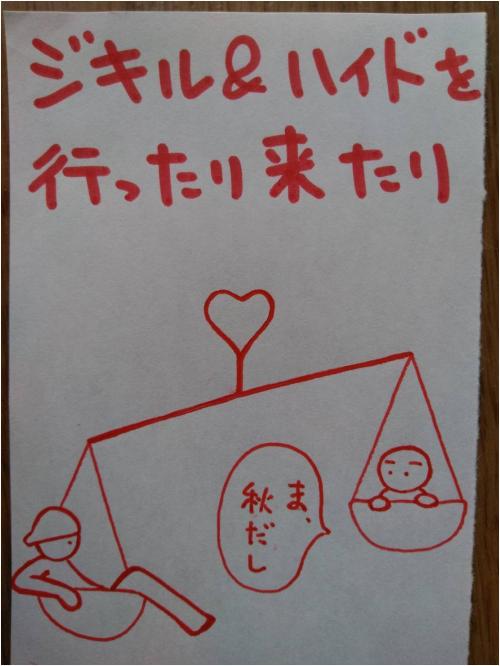 ジキル&ハイドを
行ったり来たり
ま、
秋だし